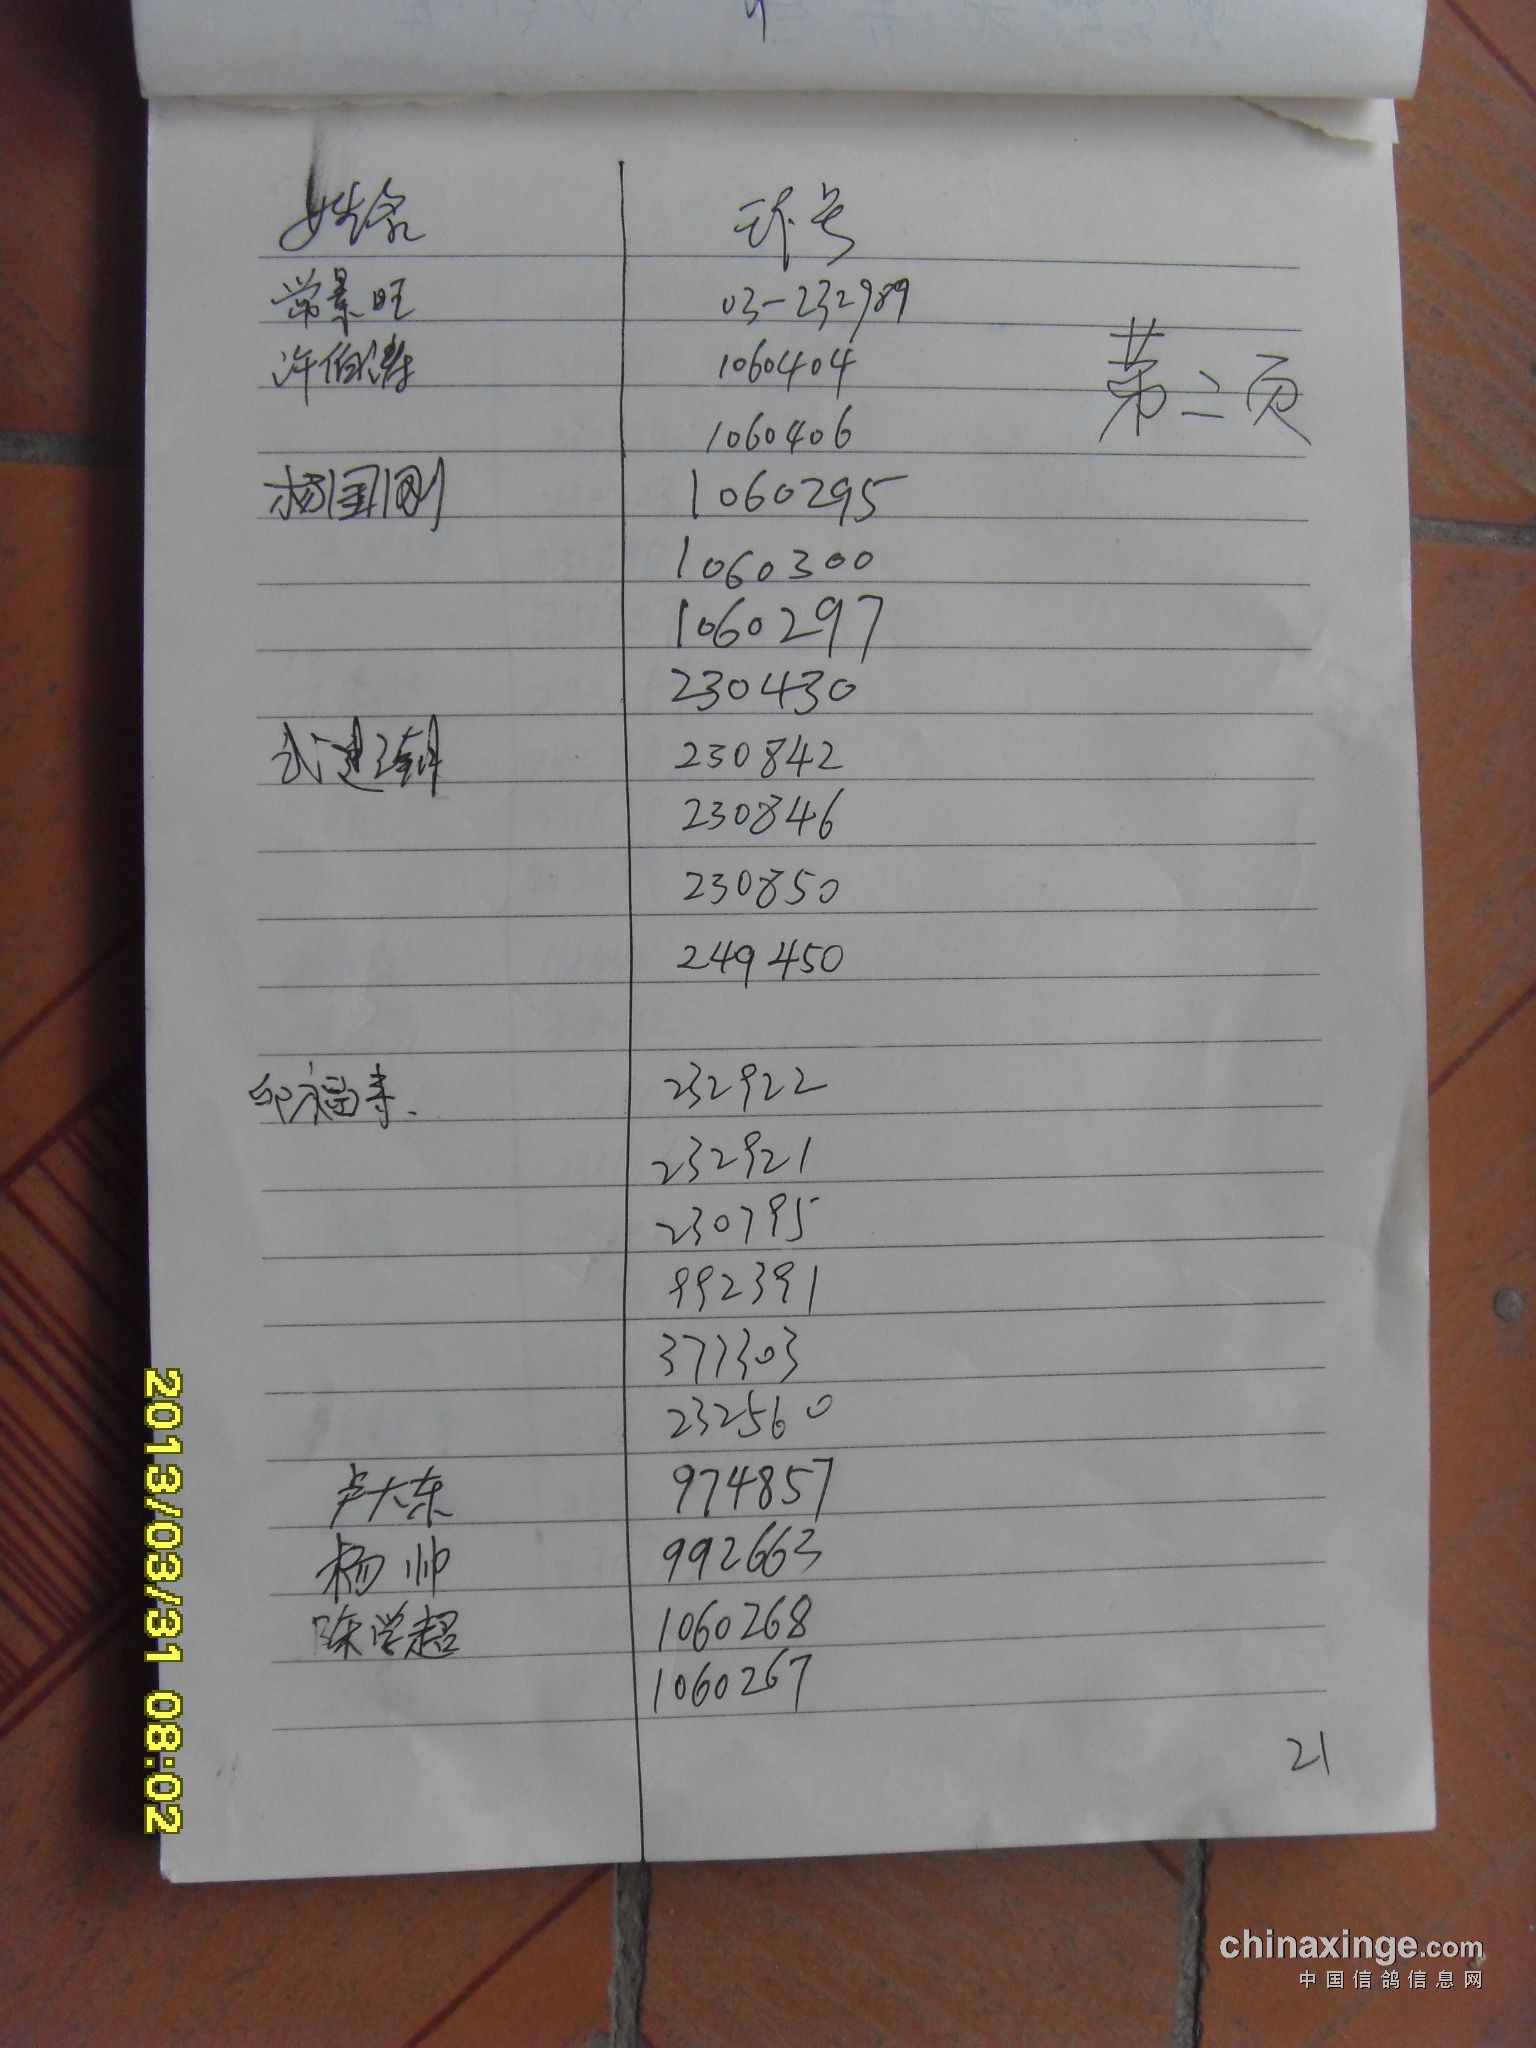 姓名 环号
常景旺 03-232989
许伯涛 1060404
第二页
1060406
杨国刚 1060295
1060300
1060297
230430
武建朝 230842
230846
230850
249450
邱福来. 232922
232921
230795
992391
377303
232560
卢大东 974857
杨帅 992663
陈学超 1060268
1060267
21
2013/03/31 08:02
chinaxinge.com
中国信鸽信息网